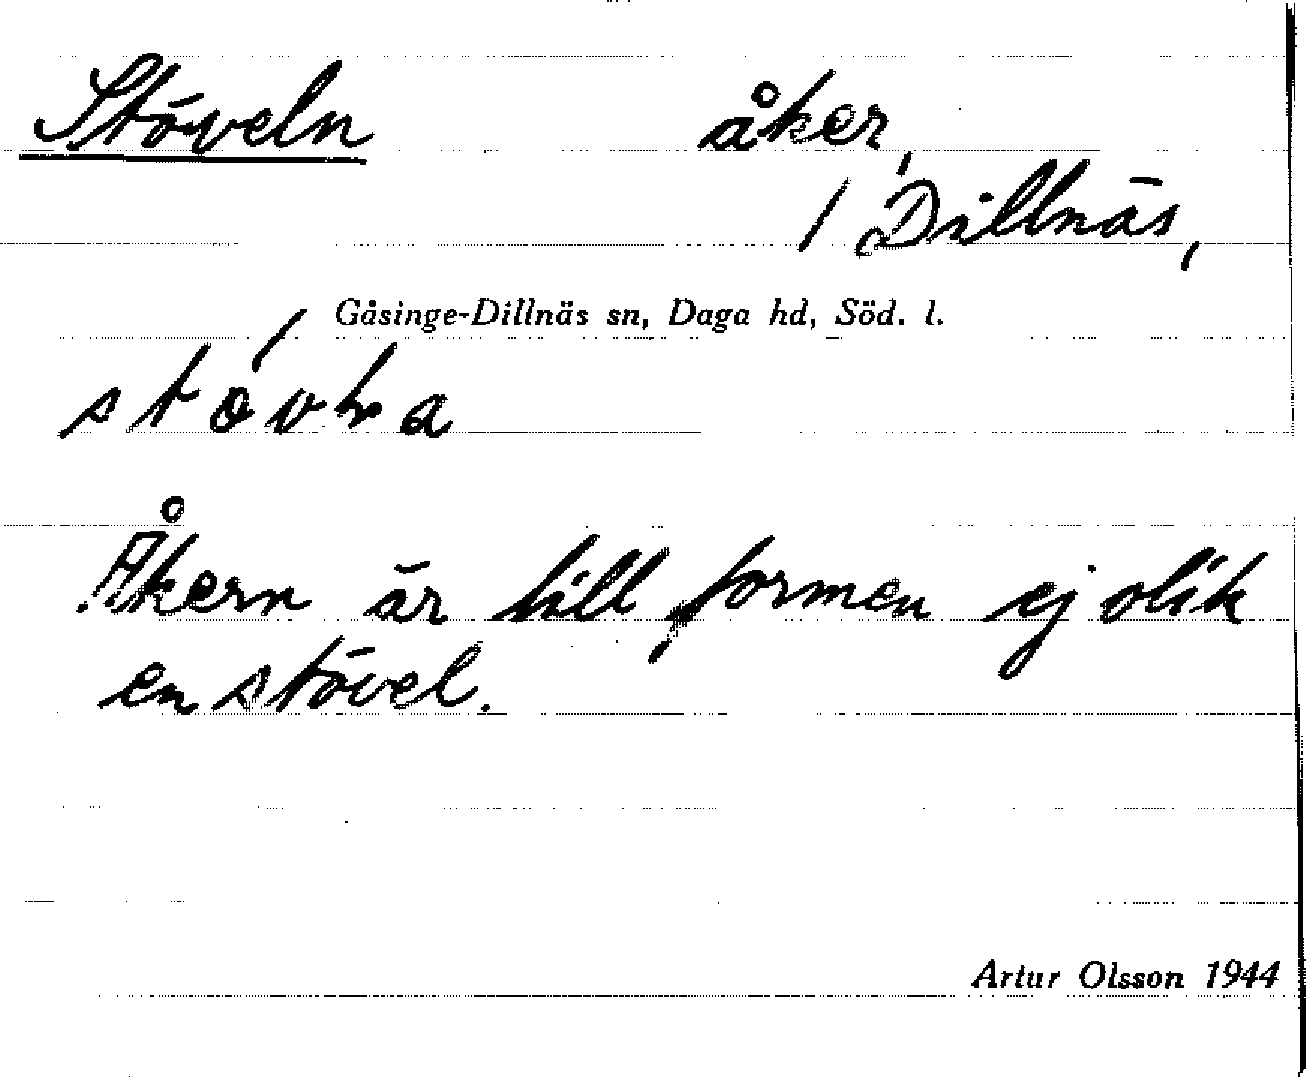 Stöveln åker,
/ Dillnäs,
Gåsinge-Dillnäs sn, Daga hd, Söd. l.
Åkern är till formen ej olik
en stövel.
Artur Olsson 1944